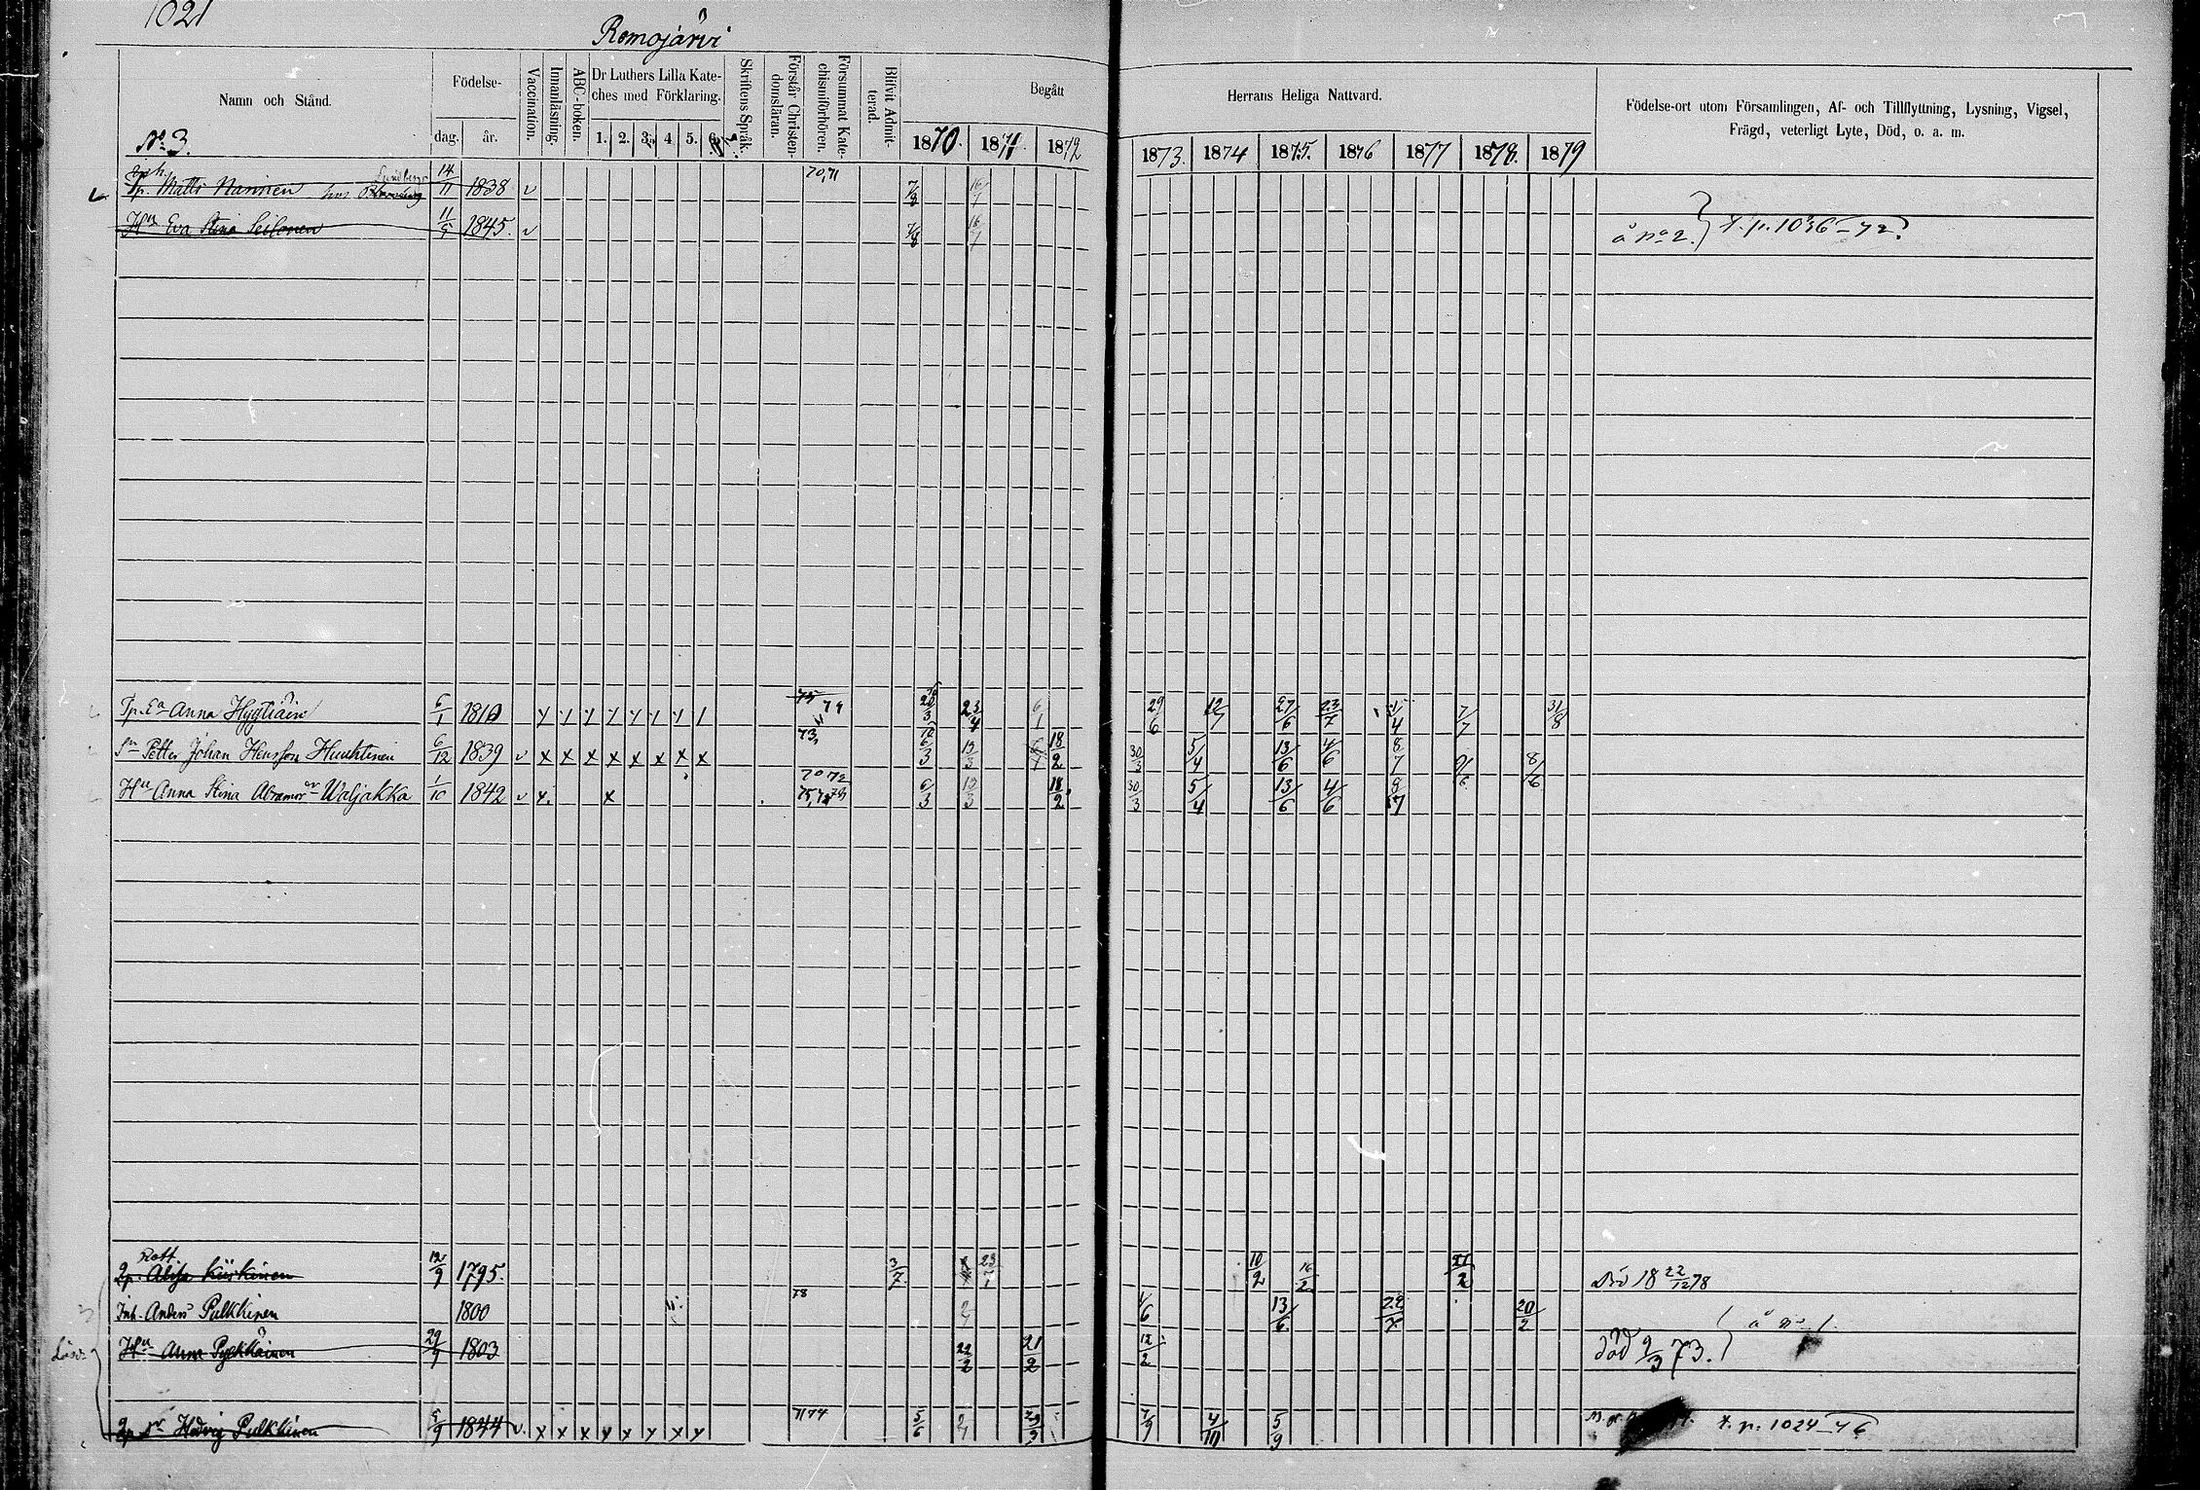 1021
Romojärvi
Namn och Stånd.
Födelse-
dag. år.
Vaccination.
Innanläsning.
ABC-boken.
Dr Luthers Lilla Kate-
ches med Förklaring.
1. 2. 3. 4. 5. 6.
Skriftens Språk.
Förstår Christen-
domsläran.
Försummat Kate-
chismiförhören.
Blifvit Admit-
terad.
Begått
1870. 1871. 1872
Herrans Heliga Nattvard.
1873. 1874 1875. 1876 1877 1878. 1879
Födelse-ort utom Församlingen, Af- och Tillflyttning, Lysning, Vigsel,
Frägd, veterligt Lyte, Död, o. a. m.
No 3.
Matts Nansien 14/11 1838 v 70,71 16/7
Hu Eva Stina Seilonen 11/5 1845. v 7/8 16/7 å no 2. } t. p. 1036-72.
Tp. Ea Anna Hygtiäin 6/1 1810 23/4 6/1 29/6 12/7 27/6 23/7 7/7 31/8
Sn Petter Johan Henrsson Huuhtinen 6/12 1839 v x x x x x x x x 73, 6/3 13/3 18/2 30/3 5/4 13/6 4/6 8/7 9/6 8/6
Hu Anna Stina Abramsdr Waljakka 1/10 1842 v x. x 70 72 6/3 13/3 18/2 30/3 5/4 13/6 4/6 8/7
Rott
Ip. Alisa Kiiskinen 1795. 3/7 23/1 10/2 16/2 21/2 Död 18 22/12 78
Inh. Anders Pulkkinen 1800 78 4/6 13/6 22/7 20/2
Hu Anna Pyykkäinen 29/9 1803 22/2 21/2 12/2 död 9/3 73. } å no 1.
Hedvig Pulkkinen 5/9 1844 v. x x x x x x x x 71 74 5/6 7/9 4/10 5/9 t. p. 1024-76